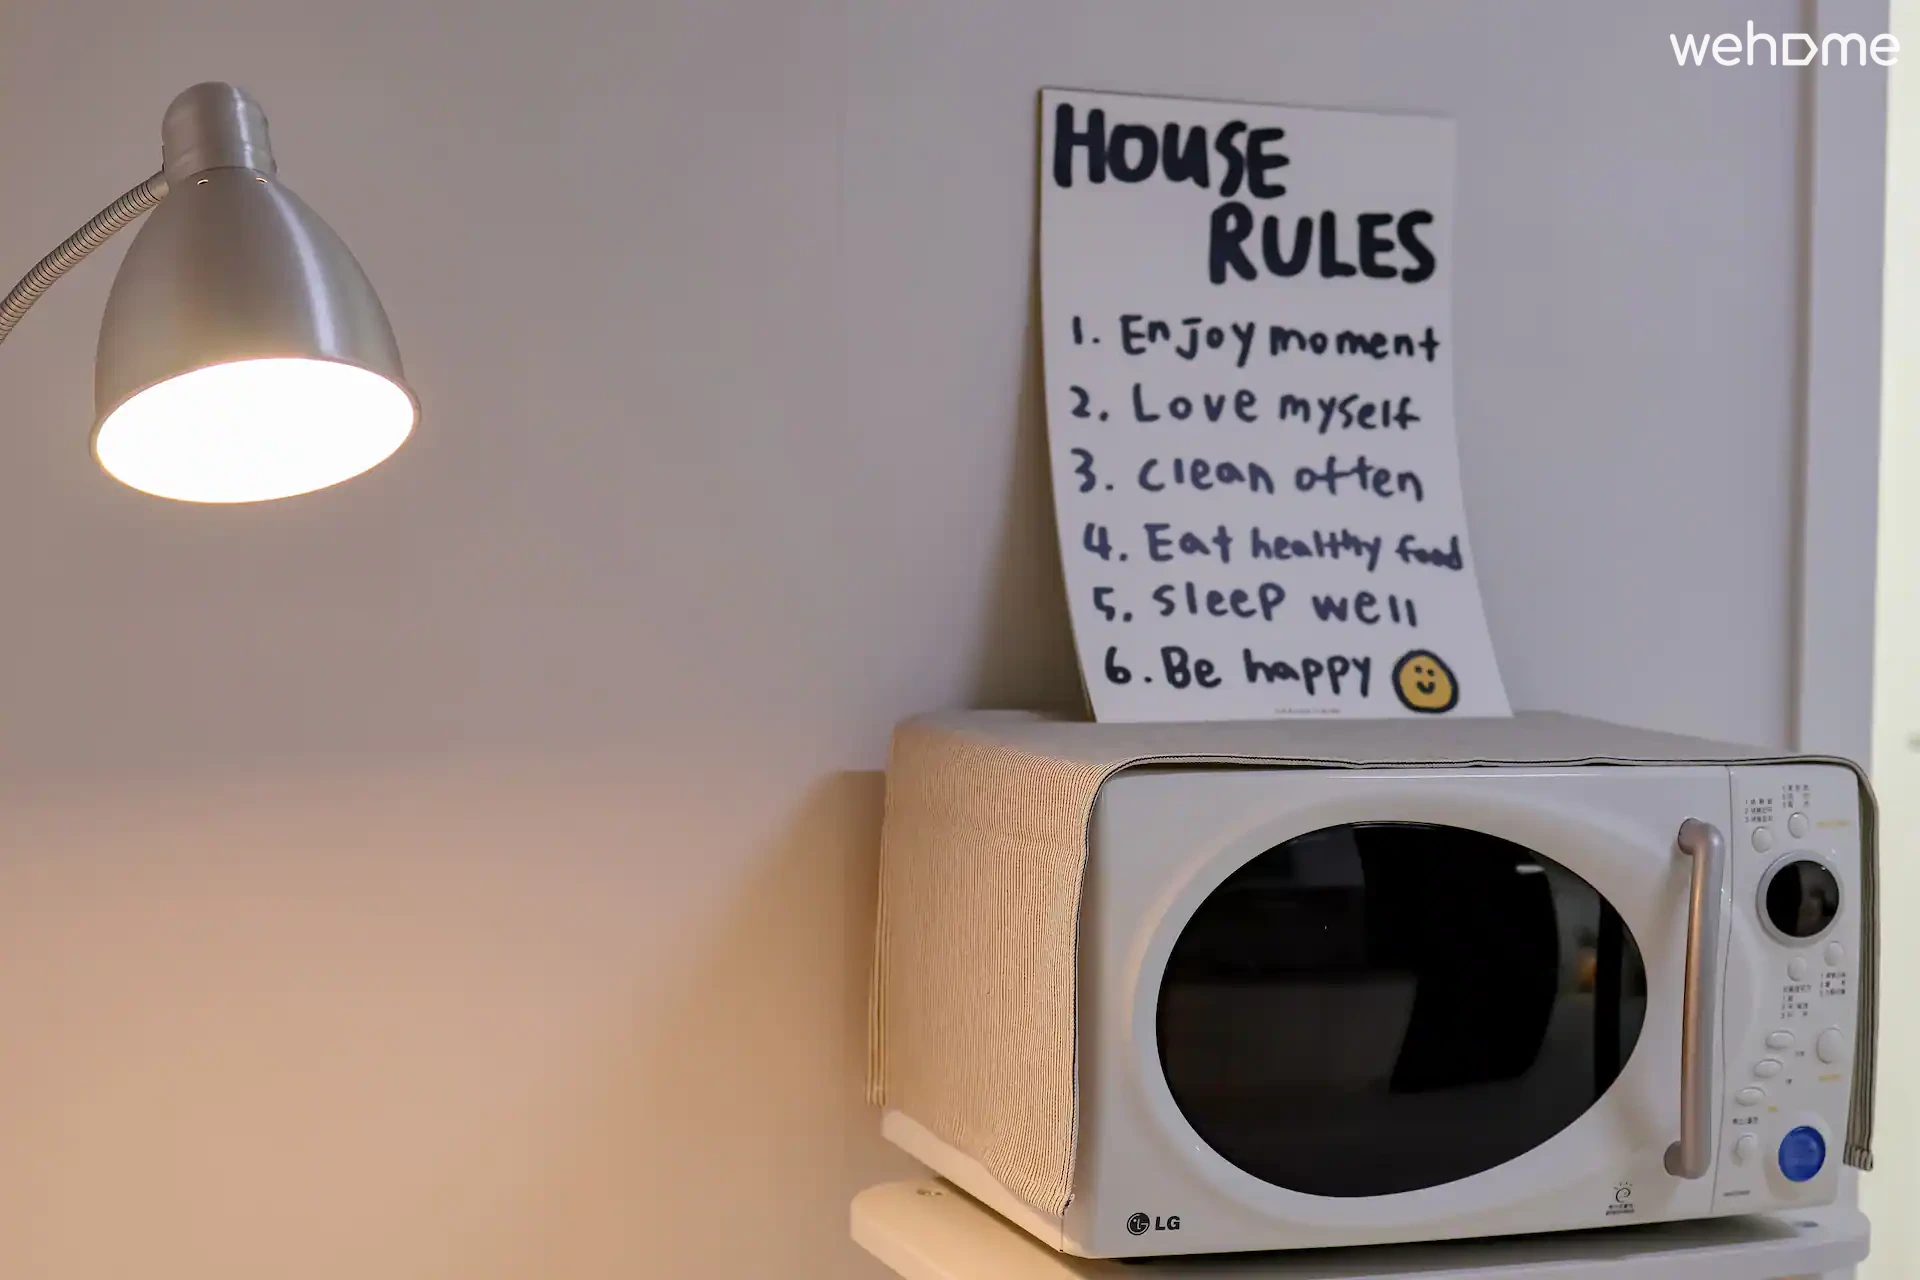 wehome
HOUSE
RULES
1. Enjoy moment
2. Love myself
3. clean often
4. Eat healthy food
5. sleep well
6. Be happy
LG